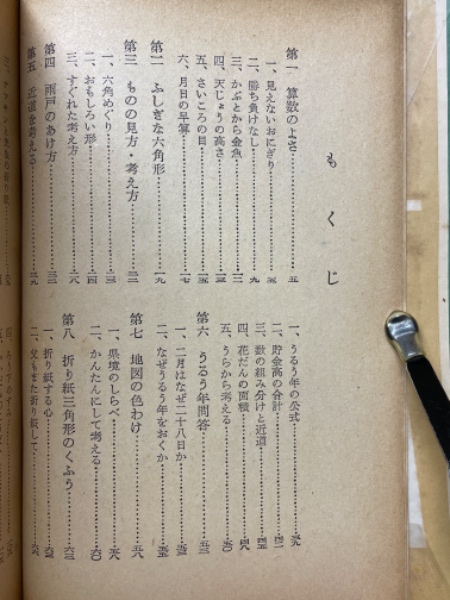 もくじ
第一 算数のよさ……五
一、見えないおにぎり……五
二、勝ち負けなし……九
三、かぶとから金魚……一一
四、天じょうの高さ……一三
五、さいころの目……一五
六、月日の早算……一七
第二 ふしぎな六角形……一九
第三 ものの見方・考え方……二二
一、六角めぐり……二二
二、おもしろい形……二四
三、すぐれた考え方……二八
第四 雨戸のあけ方……三二
第五 近道を考える……三九
一、うるう年の公式……三九
二、貯金高の合計……四二
三、数の組み分けと近道……四五
四、花だんの面積……四八
五、うらから考える……五〇
第六 うるう年問答……五三
一、二月はなぜ二十八日か……五三
二、なぜうるう年をおくか……五五
第七 地図の色わけ……五八
一、県境のしらべ……五八
二、かんたんにして考える……六〇
第八 折り紙三角形のくふう……六三
一、折り紙する心……六三
二、父もまた折り紙して……六六